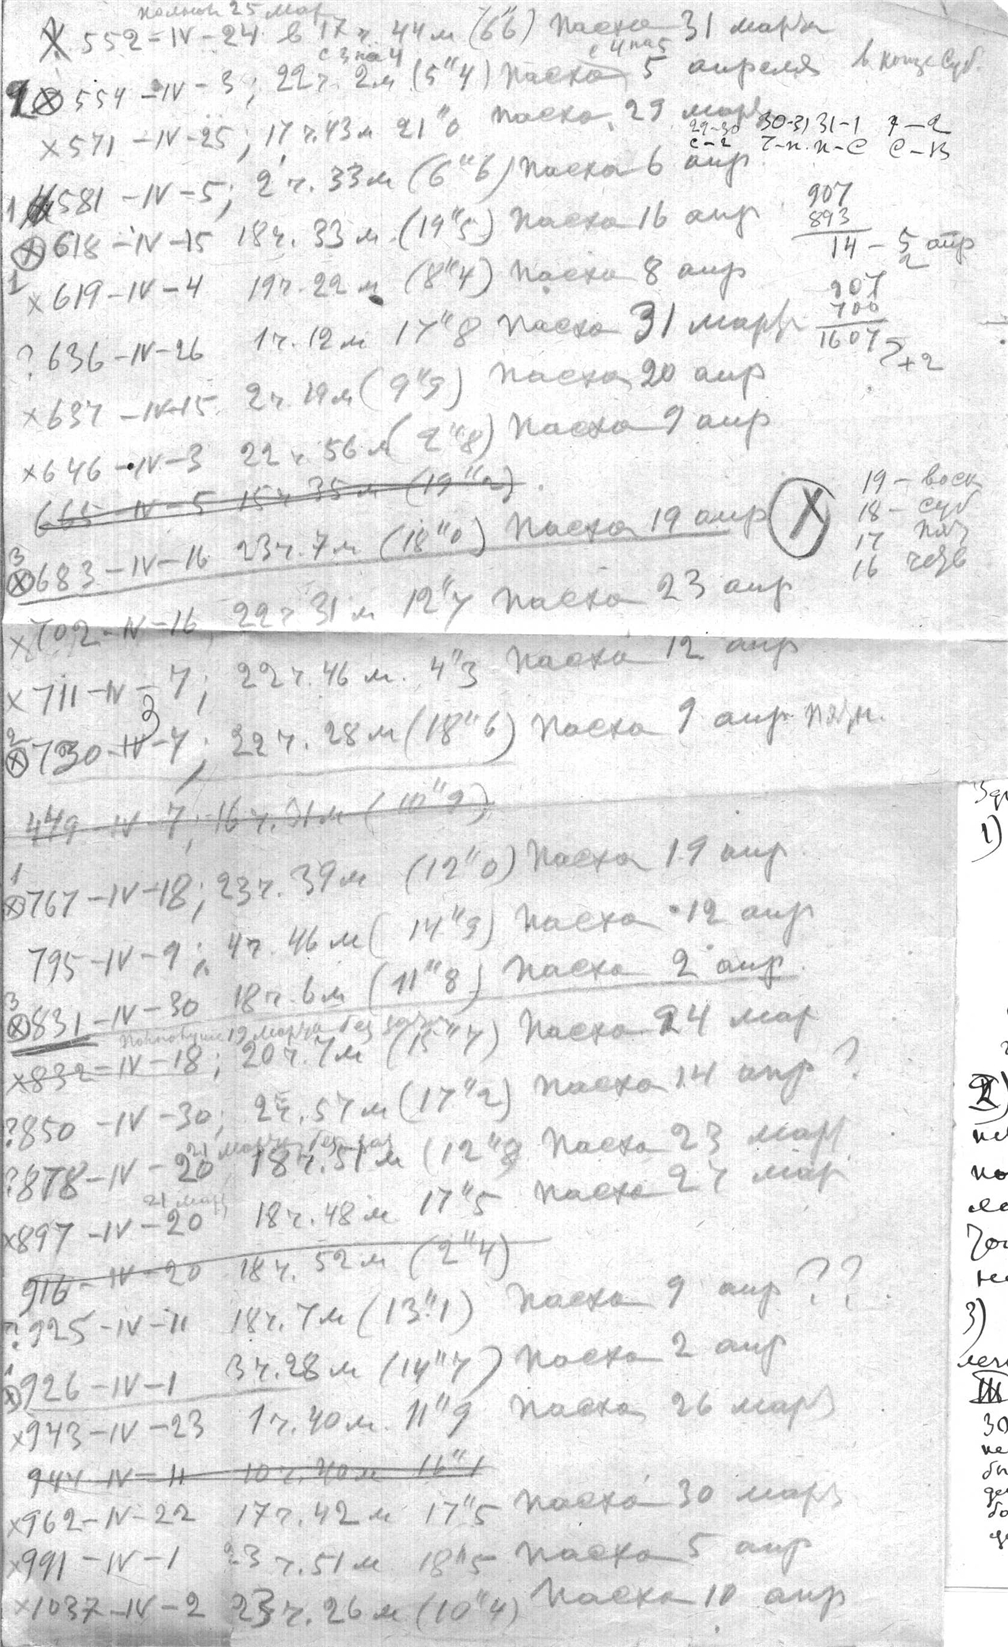 полнол 25 мар
X 552 = IV - 24 в 17 ч. 44 м (6"6) Пасха 31 марта
с 3 на 4 с 4 на 5
2 ⊗ 554 - IV - 3; 22 ч. 2 м (5"4) Пасха 5 апреля в конце суб.
x 571 - IV - 25; 17 ч. 43 м 21"0 Пасха 29 март
29-30 30-31 31-1 1-2
с-2 ч-п. п-с с-в
1 581 - IV - 5; 2 ч. 33 м (6"6) Пасха 6 апр
⊗ 618 - IV - 15 18 ч. 33 м (19"5) Пасха 16 апр
907
893
14 - 5 апр
2
1
x 619 - IV - 4 19 ч. 22 м (8"4) Пасха 8 апр
907
700
1607
?+2
? 636 - IV - 26 1 ч. 12 м 17"8 Пасха 31 март
x 637 - IV - 15 2 ч. 19 м (9"9) Пасха 20 апр
x 646 - IV - 3 22 ч. 56 м (2"8) Пасха 9 апр
665 - IV - 5 15 ч. 35 м (19"2)
X
19 - воск
18 - суб
17 пят
16 четв
3
⊗ 683 - IV - 16 23 ч. 7 м (18"0) Пасха 19 апр
x 702 - IV - 16, 22 ч 31 м 12"7 Пасха 23 апр
x 711 - IV - 7; 22 ч. 46 м. 4"3 Пасха 12 апр
2
⊗ 730 - IV - 7; 22 ч. 28 м (18"6) Пасха 9 апр. пятн.
449 - IV - 7; 16 ч. 31 м (10"9)
1
⊗ 767 - IV - 18; 23 ч. 39 м (12"0) Пасха 19 апр.
795 - IV - 9; 4 ч. 46 м (14"9) Пасха 12 апр
3
⊗ 831 - IV - 30 18 ч. 6 м (11"8) Пасха 2 апр.
полнолуние 19 марта без
x 832 - IV - 18; 20 ч. 7 м (15"7) Пасха 24 мар
? 850 - IV - 30; 2 ч. 57 м (17"2) Пасха 14 апр ?
21 марта без
? 878 - IV - 20 18 ч. 51 м (12"8 Пасха 23 март
21 март
x 897 - IV - 20 18 ч. 48 м 17"5 Пасха 27 мар
916 - IV - 20 18 ч. 52 м (2"4)
? 925 - IV - 11 18 ч. 7 м (13"1) Пасха 9 апр ??
1
⊗ 926 - IV - 1 3 ч. 28 м (14"7) Пасха 2 апр
x 943 - IV - 23 1 ч. 40 м. 11"9 Пасха 26 март
944 - IV - 11 10 ч. 40 м 16"1
x 962 - IV - 22 17 ч. 42 м 17"5 Пасха 30 март
x 991 - IV - 1 23 ч. 51 м 18"5 Пасха 5 апр
x 1037 - IV - 2 23 ч. 26 м (10"4) Пасха 10 апр
1)
3)
III